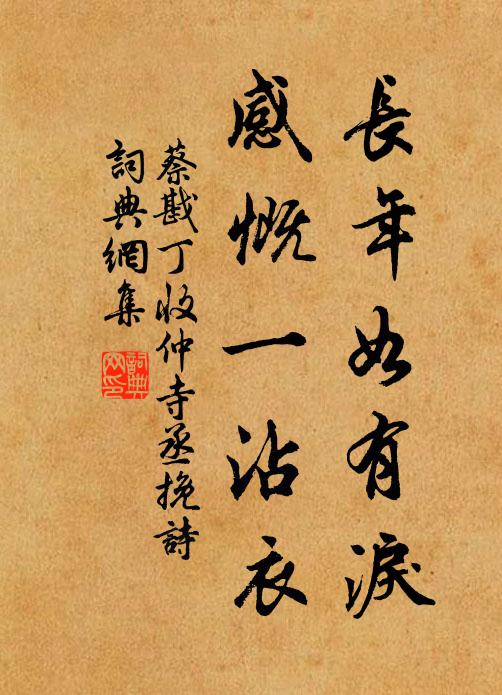 長年如有淚
感慨一沾衣
蔡戡丁收仲寺丞挽詩
詞典網集
詞典網印